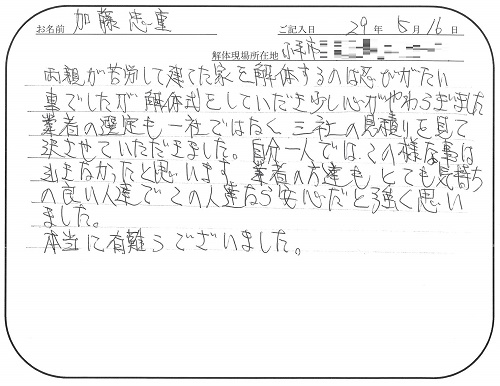 お名前 加藤忠重 ご記入日 29年5月16日
解体現場所在地 小平市
両親が苦労して建てた家を解体するのは忍びがたい
事でしたが解体式をしていただき少し心がやわらぎました
業者の選定も一社ではなく、三社の見積りを見て
決させていただきました。自分一人では、この様な事は
出来なかったと思います。業者の方達も、とても気持ち
の良い人達で この人達なら安心だと強く思い
ました。
本当に有難うございました。